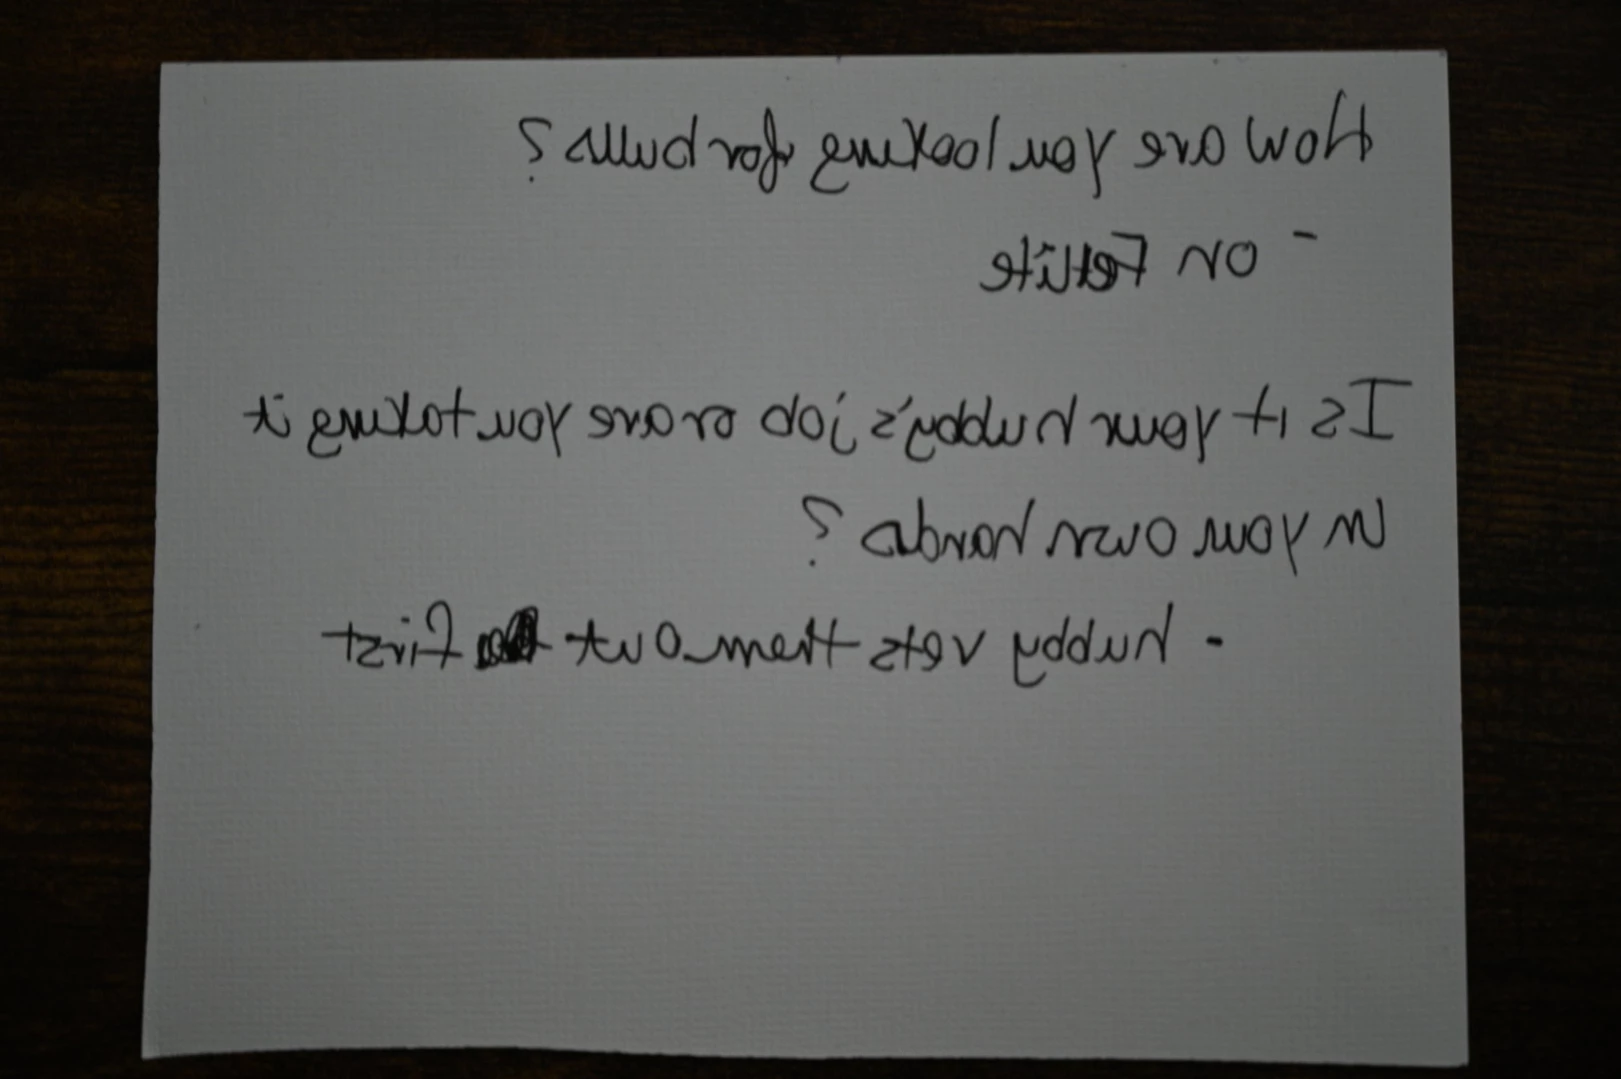 How are you looking for bulls?
- on Fetlife
Is it your hubby's job or are you taking it
in your own hands?
- hubby vets them out first